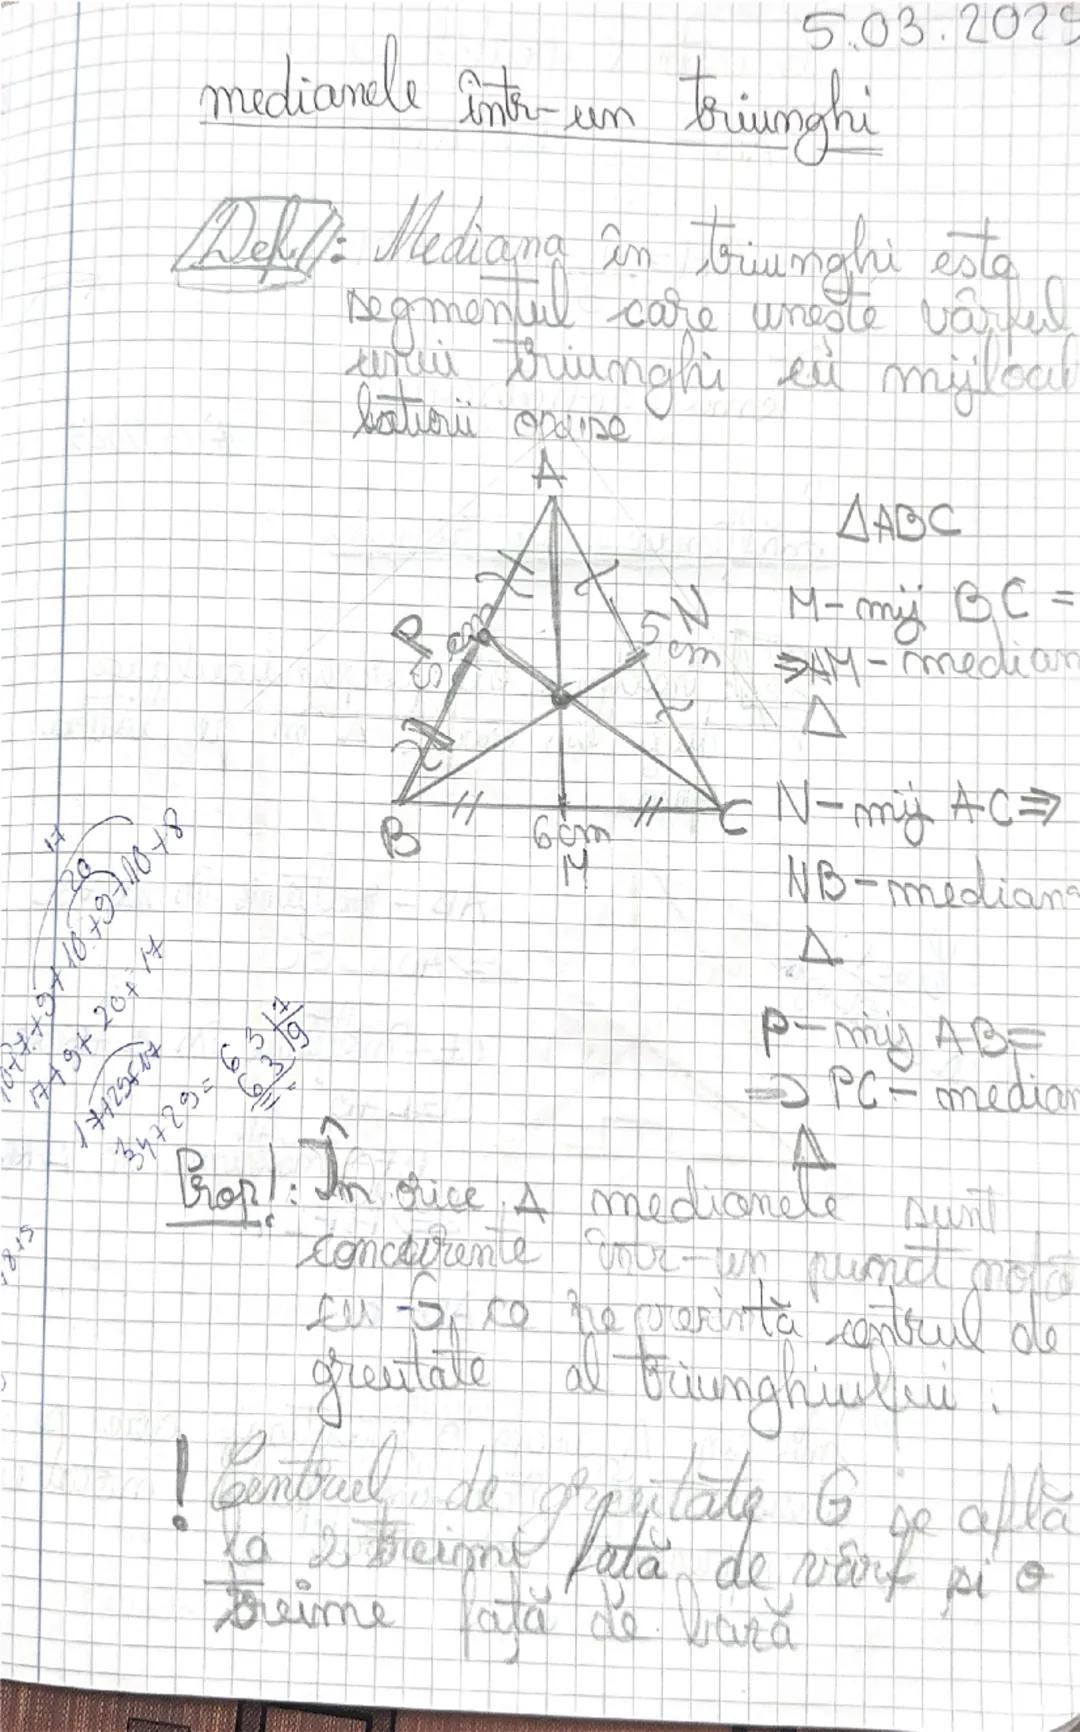 5.03.2025
medianele într-un triunghi
Def!: Mediana în triunghi este
segmentul care unește vârful
unui triunghi cu mijlocul
laturii opuse
A
△ABC
N
P
5 cm
5 cm
M-mij BC =
⇒AM-median
△
B
C
6 cm
M
N-mij AC⇒
NB-mediana
△
10+7+9+10+9+10+8
17
20
17+9+20+17
17+29+17
34+29=63
63 7
63 9
P-mij AB=
⇒ PC-median
△
Prop!: În orice △ medianele sunt
concurente într-un punct notat
cu G, ce reprezintă centrul de
greutate al triunghiului.
! Centrul de greutate G se află
la 2 treimi față de vârf și o
treime față de bază